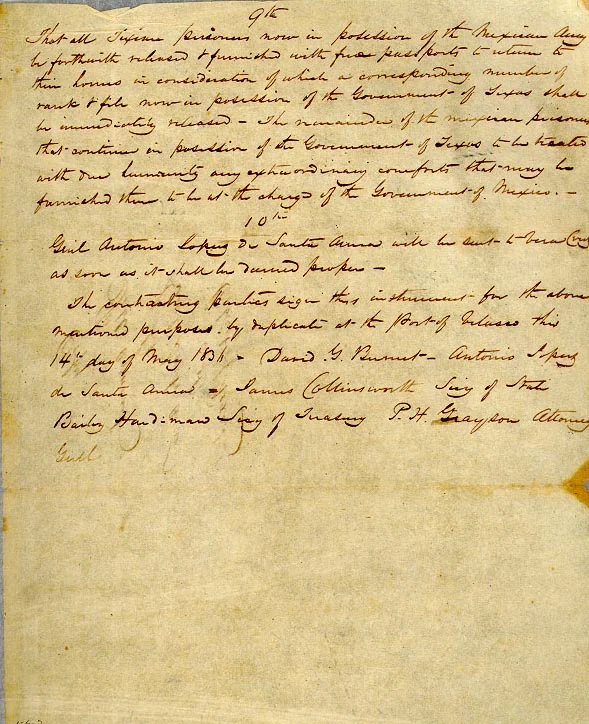 9th
That all Texian prisoners now in posession of the Mexican Army
be forthwith released & furnished with free passports to return to
their homes in consideration of which a corresponding number of
rank & file now in posession of the Government of Texas shall
be immediately released - The remainder of the mexican prisoners
that continue in posession of the Government of Texas to be treated
with due humanity any extraordinary comforts that may be
furnished them to be at the charge of the Government of Mexico. -
10th
Genl Antonio Lopez de Santa Anna will be sent to Vera Cruz
as soon as it shall be deemed proper -
The contracting parties sign this instrument for the above
mentioned purposes. by duplicate at the Port of Velasco this
14th day of May 1836 - David. G. Burnet - Antonio Lopez
de Santa Anna - James Collinsworth Secy of State
Bailey Hardiman Secy of Treasury P. H. Grayson Attorney
Genl